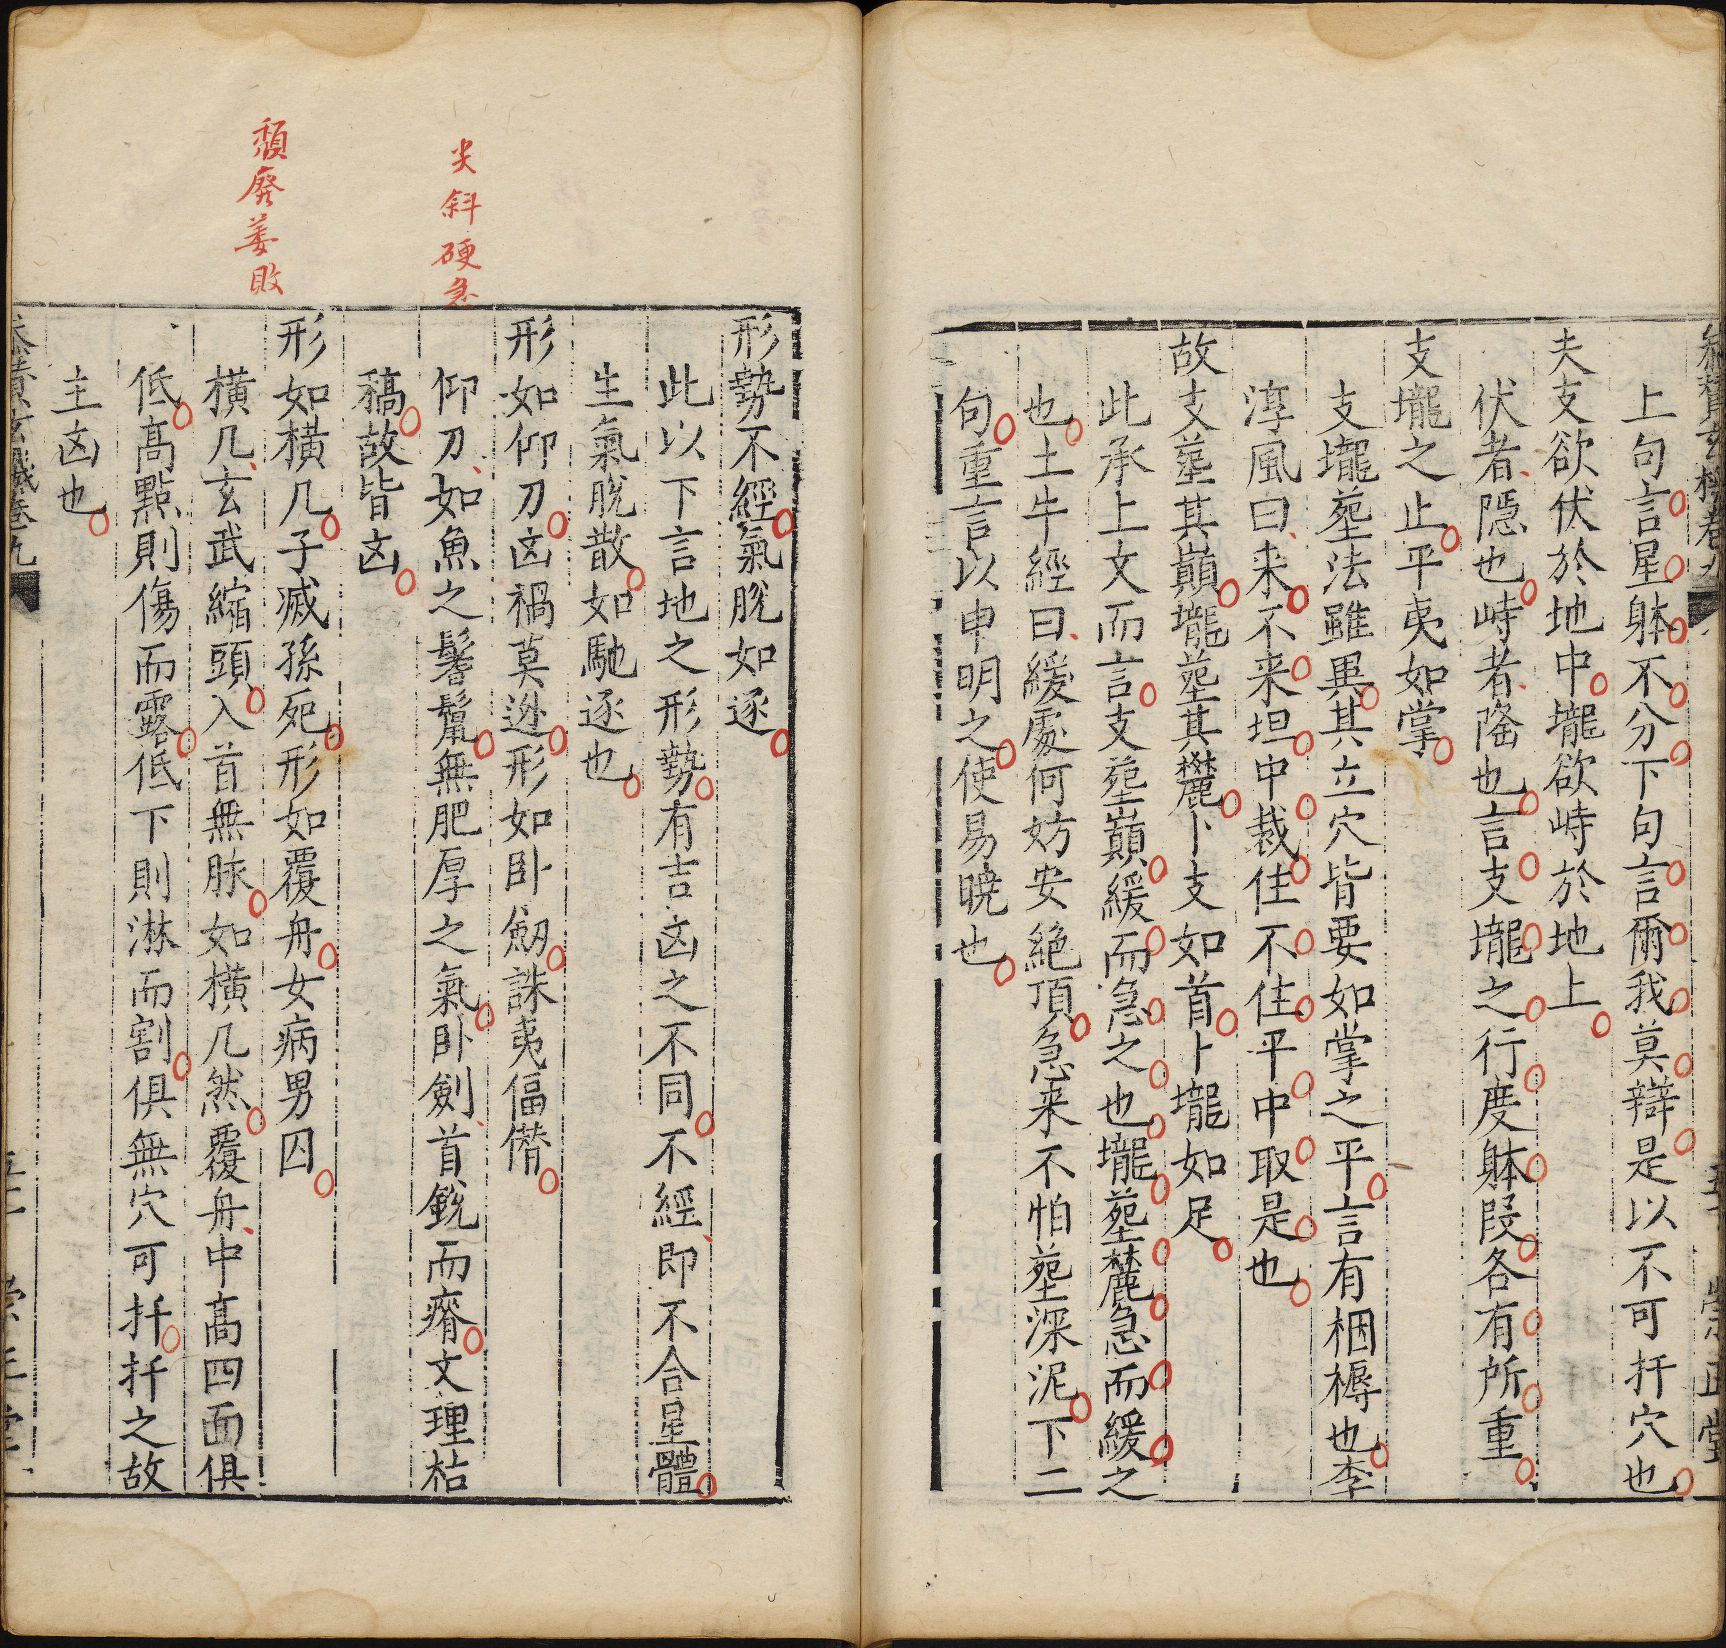 上句言星躰不分下句言爾我莫辯是以不可扦穴也
夫支欲伏於地中壠欲峙於地上
伏者隱也峙者隆也言支壠之行度躰段各有所重
支壠之止平夷如掌
支壠塟法雖異其立穴皆要如掌之平言有裀褥也李
淳風曰来不来坦中裁住不住平中取是也
故支塟其巔壠塟其麓卜支如首卜壠如足
此承上文而言支塟巔緩而急之也壠塟麓急而緩之
也土牛經曰緩處何妨安絶頂急来不怕塟深泥下二
句重言以申明之使易曉也
形勢不經氣脫如逐
此以下言地之形勢有吉凶之不同不經即不合星體
生氣脫散如馳逐也
尖斜硬急
形如仰刀凶禍莫逊形如卧劒誅夷偪僭
仰刀如魚之鬐鬛無肥厚之氣卧劍首銳而瘠文理枯
稿故皆凶
頹廢萎敗
形如橫几子滅孫死形如覆舟女病男囚
橫几玄武縮頭入首無脉如橫几然覆舟中髙四面俱
低髙點則傷而露低下則淋而割俱無穴可扦扦之故
主凶也